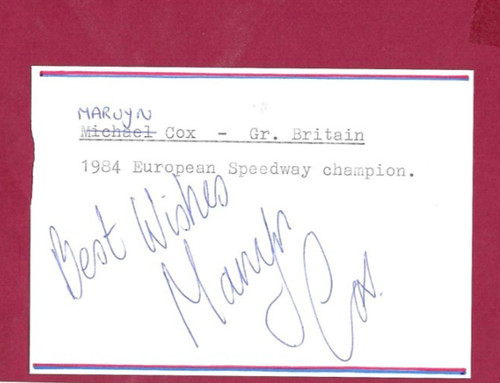 MARVYN
Michael Cox - Gr. Britain
1984 European Speedway champion.
Best Wishes
Marvyn
Cox.